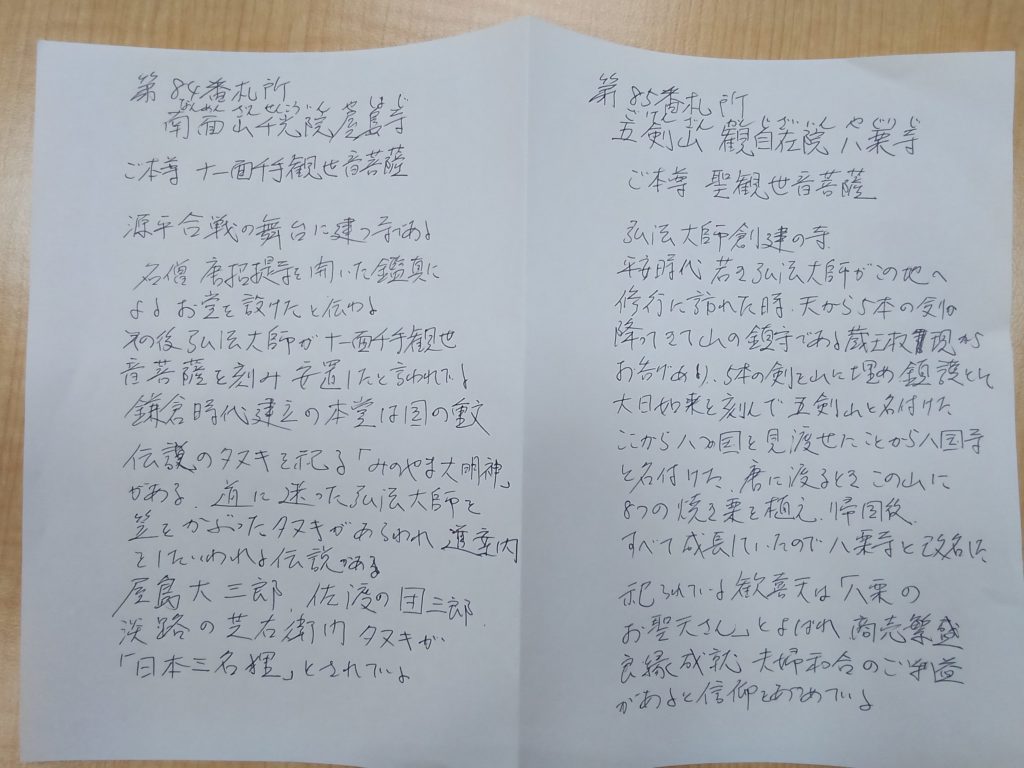 第84番札所
なんめんざん せんこういん やしまじ
南面山千光院屋島寺
ご本尊 十一面千手観世音菩薩
源平合戦の舞台に建つ寺である
名僧 唐招提寺を開いた鑑真に
よる お堂を設けたと伝わる
その後 弘法大師が十一面千手観世
音菩薩を刻み 安置したと言われている
鎌倉時代建立の本堂は国の重文
伝説のタヌキを祀る「みのやま大明神」
がある。道に迷った弘法大師を
笠をかぶったタヌキがあらわれ 道案内
をしたいわれる伝説がある
屋島大三郎、佐渡の団三郎、
淡路の芝右衛門 タヌキが
「日本三名狸」とされている
第85番札所
ごけんざん かんじざいいん やくりじ
五剣山 観自在院 八栗寺
ご本尊 聖観世音菩薩
弘法大師創建の寺、
平安時代 若き弘法大師がこの地へ
修行に訪れた時、天から5本の剣が
降ってきて山の鎮守である蔵王権現から
お告げあり、5本の剣を山に埋め鎮護として
大日如来を刻んで五剣山と名付けた
ここから八ヵ国を見渡せたことから八国寺
と名付けた、唐に渡るとき この山に
8つの焼き栗を植え、帰国後、
すべて成長していたので八栗寺と改名した
祀られている歓喜天は「八栗の
お聖天さん」とよばれ 商売繁盛
良縁成就 夫婦和合のご利益
があると信仰をあつめている